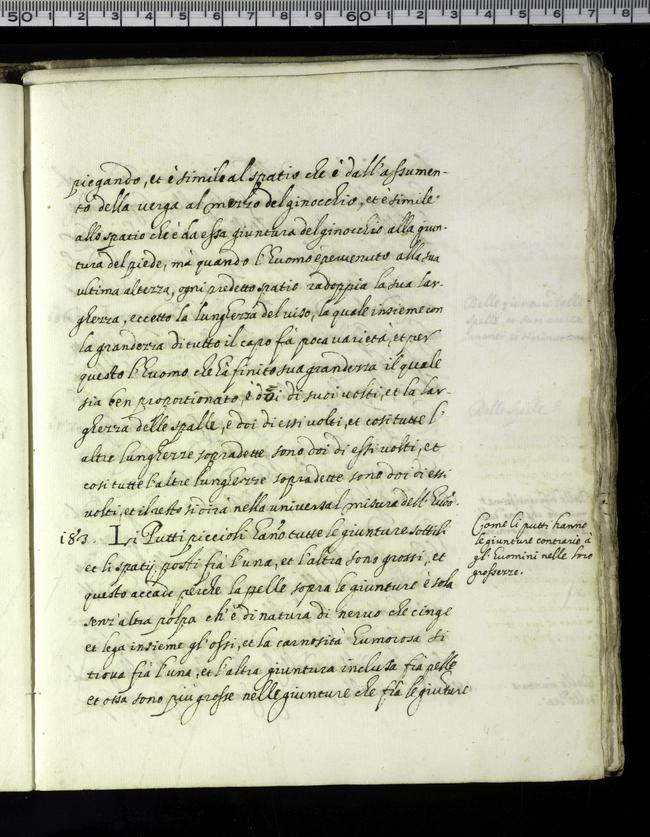 piegando, et è simile al spatio che è dall'assumen-
to della verga al mezzo del ginocchio, et è simile
allo spatio che è da essa giuntura del ginocchio alla giun-
tura del piede, mà quando l'huomo è pervenuto alla sua
ultima altezza, ogni predetto spatio radoppia la sua lar-
ghezza, eccetto la lunghezza del viso, la quale insieme con
la grandezza di tutto il capo fà poca varietà, et per
questo l'huomo che hà finito sua grandezza il quale
sia ben proportionato, è doi di suoi volti, et la lar-
ghezza delle spalle, è doi di essi volti, et cosi tutte l'
altre lunghezze sopradette sono doi di essi volti, et
cosi tutte l'altre lunghezze sopradette sono doi di essi
volti, et il resto si dirà nella universal misura dell'huõ.
183. Li Putti piccioli hãno tutte le giunture sottili
et li spatij posti frà l'una, et l'altra sono grossi, et
questo accade perche la pelle sopra le giunture è sola
senz'altra polpa ch'è di natura di nervo che cinge
et lega insieme gl'ossi, et la carnosità humorosa si
trova frà l'una, et l'altra giuntura inclusa frà pelle
et ossa sono piu grosse nelle giunture che frà le giũture
Come li putti hanno
le giunture contrarie à
gl'huomini nelle loro
grossezze.